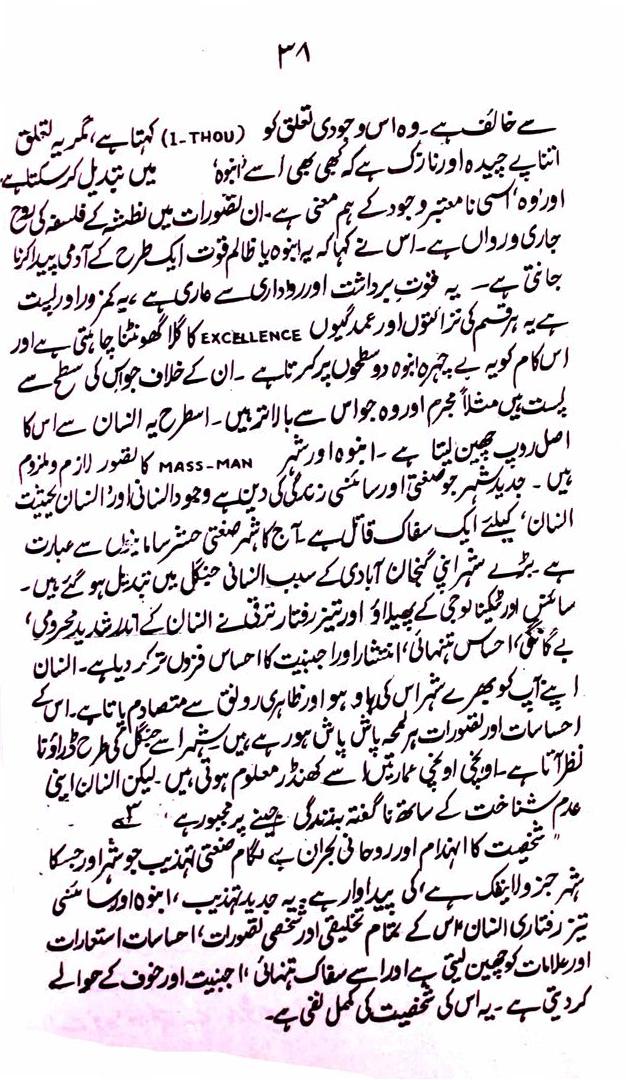 ۳۸
سے خائف ہے۔ وہ اس وجودی تعلق کو (I-THOU) کہتا ہے، مگر یہ تعلق
اتنا پے چیدہ اور نازک ہے کہ کبھی بھی اسے 'انبوہ' میں تبدیل کر سکتا ہے،
اور 'وہ' اسی نامعتبر وجود کے ہم معنی ہے۔ ان تصورات میں نطشہ کے فلسفہ کی روح
جاری و رواں ہے۔ اس نے کہا کہ یہ انبوہ یا ظالم قوت ایک طرح کے آدمی پیدا کرنا
جانتی ہے۔ یہ قوت برداشت اور رواداری سے عاری ہے، یہ کمزور اور پست
ہے یہ ہر قسم کی نزاکتوں اور عمدگیوں EXCELLENCE کا گلا گھونٹنا چاہتی ہے اور
اس کام کو یہ بے چہرہ انبوہ دو سطحوں پر کرتا ہے۔ ان کے خلاف جو اس کی سطح سے
پست ہیں مثلاً مجرم اور وہ جو اس سے بالاتر ہیں۔ اسطرح یہ انسان سے اس کا
اصل روپ چھین لیتا ہے۔ انبوہ اور شہر MASS-MAN کا تصور لازم و ملزوم
ہیں۔ جدید شہر جو صنعتی اور سائنسی زندگی کی دین ہے وجود انسانی اور 'انسان بحیثیت
انسان' کیلئے ایک سفاک قاتل ہے۔ آج کا شہر صنعتی حشر سامانیوں سے عبارت
ہے۔ بڑے شہر اپنی گنجان آبادی کے سبب انسانی جنگل میں تبدیل ہو گئے ہیں۔
سائنس اور ٹیکنالوجی کے پھیلاؤ اور تیز رفتار ترقی نے انسان کے اندر شدید محرومی،
بے گانگی، احساس تنہائی، انتشار اور اجنبیت کا احساس فزوں تر کر دیا ہے۔ انسان
اپنے آپ کو بھرے شہر اس کی ہاو ہو اور ظاہری رونق سے متصادم پاتا ہے۔ اس کے
احساسات اور تصورات ہر لمحہ پاش پاش ہو رہے ہیں شہر اسے جنگل کی طرح ڈراؤنا
نظر آتا ہے۔ اونچی اونچی عمارتیں اسے کھنڈر معلوم ہوتی ہیں۔ لیکن انسان اپنی
عدم شناخت کے ساتھ ناگفتہ بہ زندگی جینے پر مجبور ہے
" شخصیت کا انہدام اور روحانی بحران بے لگام صنعتی تہذیب جو شہر اور جسکا
شہر جزو لاینفک ہے، کی پیداوار ہے۔ یہ جدید تہذیب، انبوہ اور سائنسی
تیز رفتاری انسان اس کے تمام تخلیقی اور شخصی تصورات، احساسات استعارات
اور علامات کو چھین لیتی ہے اور اسے سفاک تنہائی، اجنبیت اور خوف کے حوالے
کر دیتی ہے۔ یہ اس کی شخصیت کی مکمل نفی ہے۔